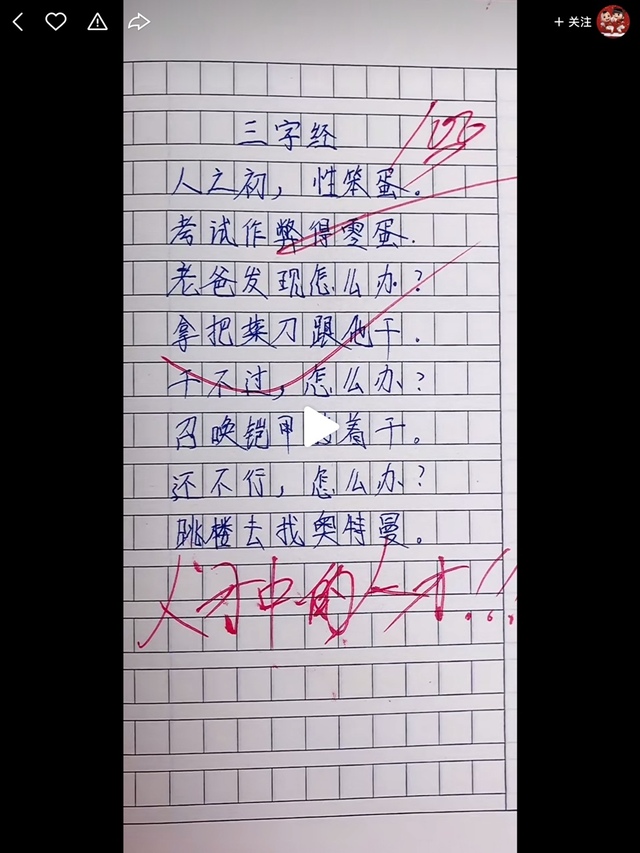 + 关注
三字经
人之初，性笨蛋。
考试作弊得零蛋.
老爸发现怎么办？
拿把菜刀跟他干.
干不过，怎么办？
召唤铠甲 着干。
还不行，怎么办？
跳楼去找奥特曼。
人才中的人才!!!